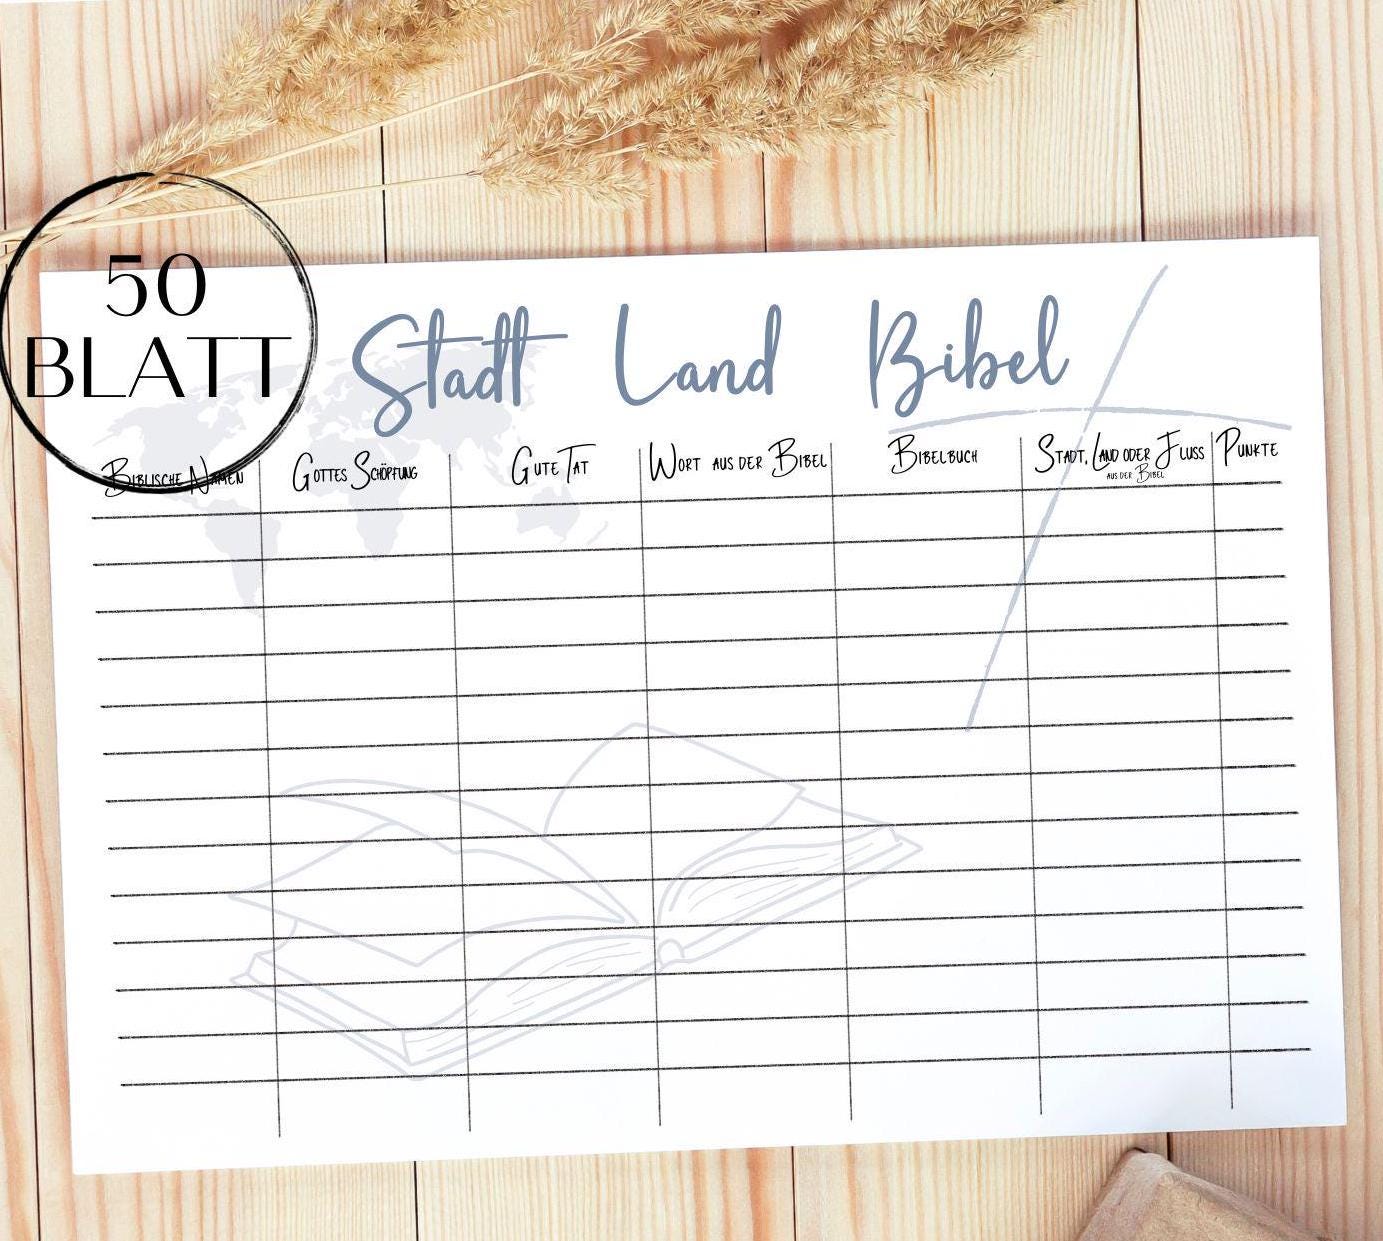 50
BLATT
Stadt Land Bibel
Biblische Namen
Gottes Schöpfung
Gute Tat
Wort aus der Bibel
Bibelbuch
Stadt, Land oder Fluss
aus der Bibel
Punkte